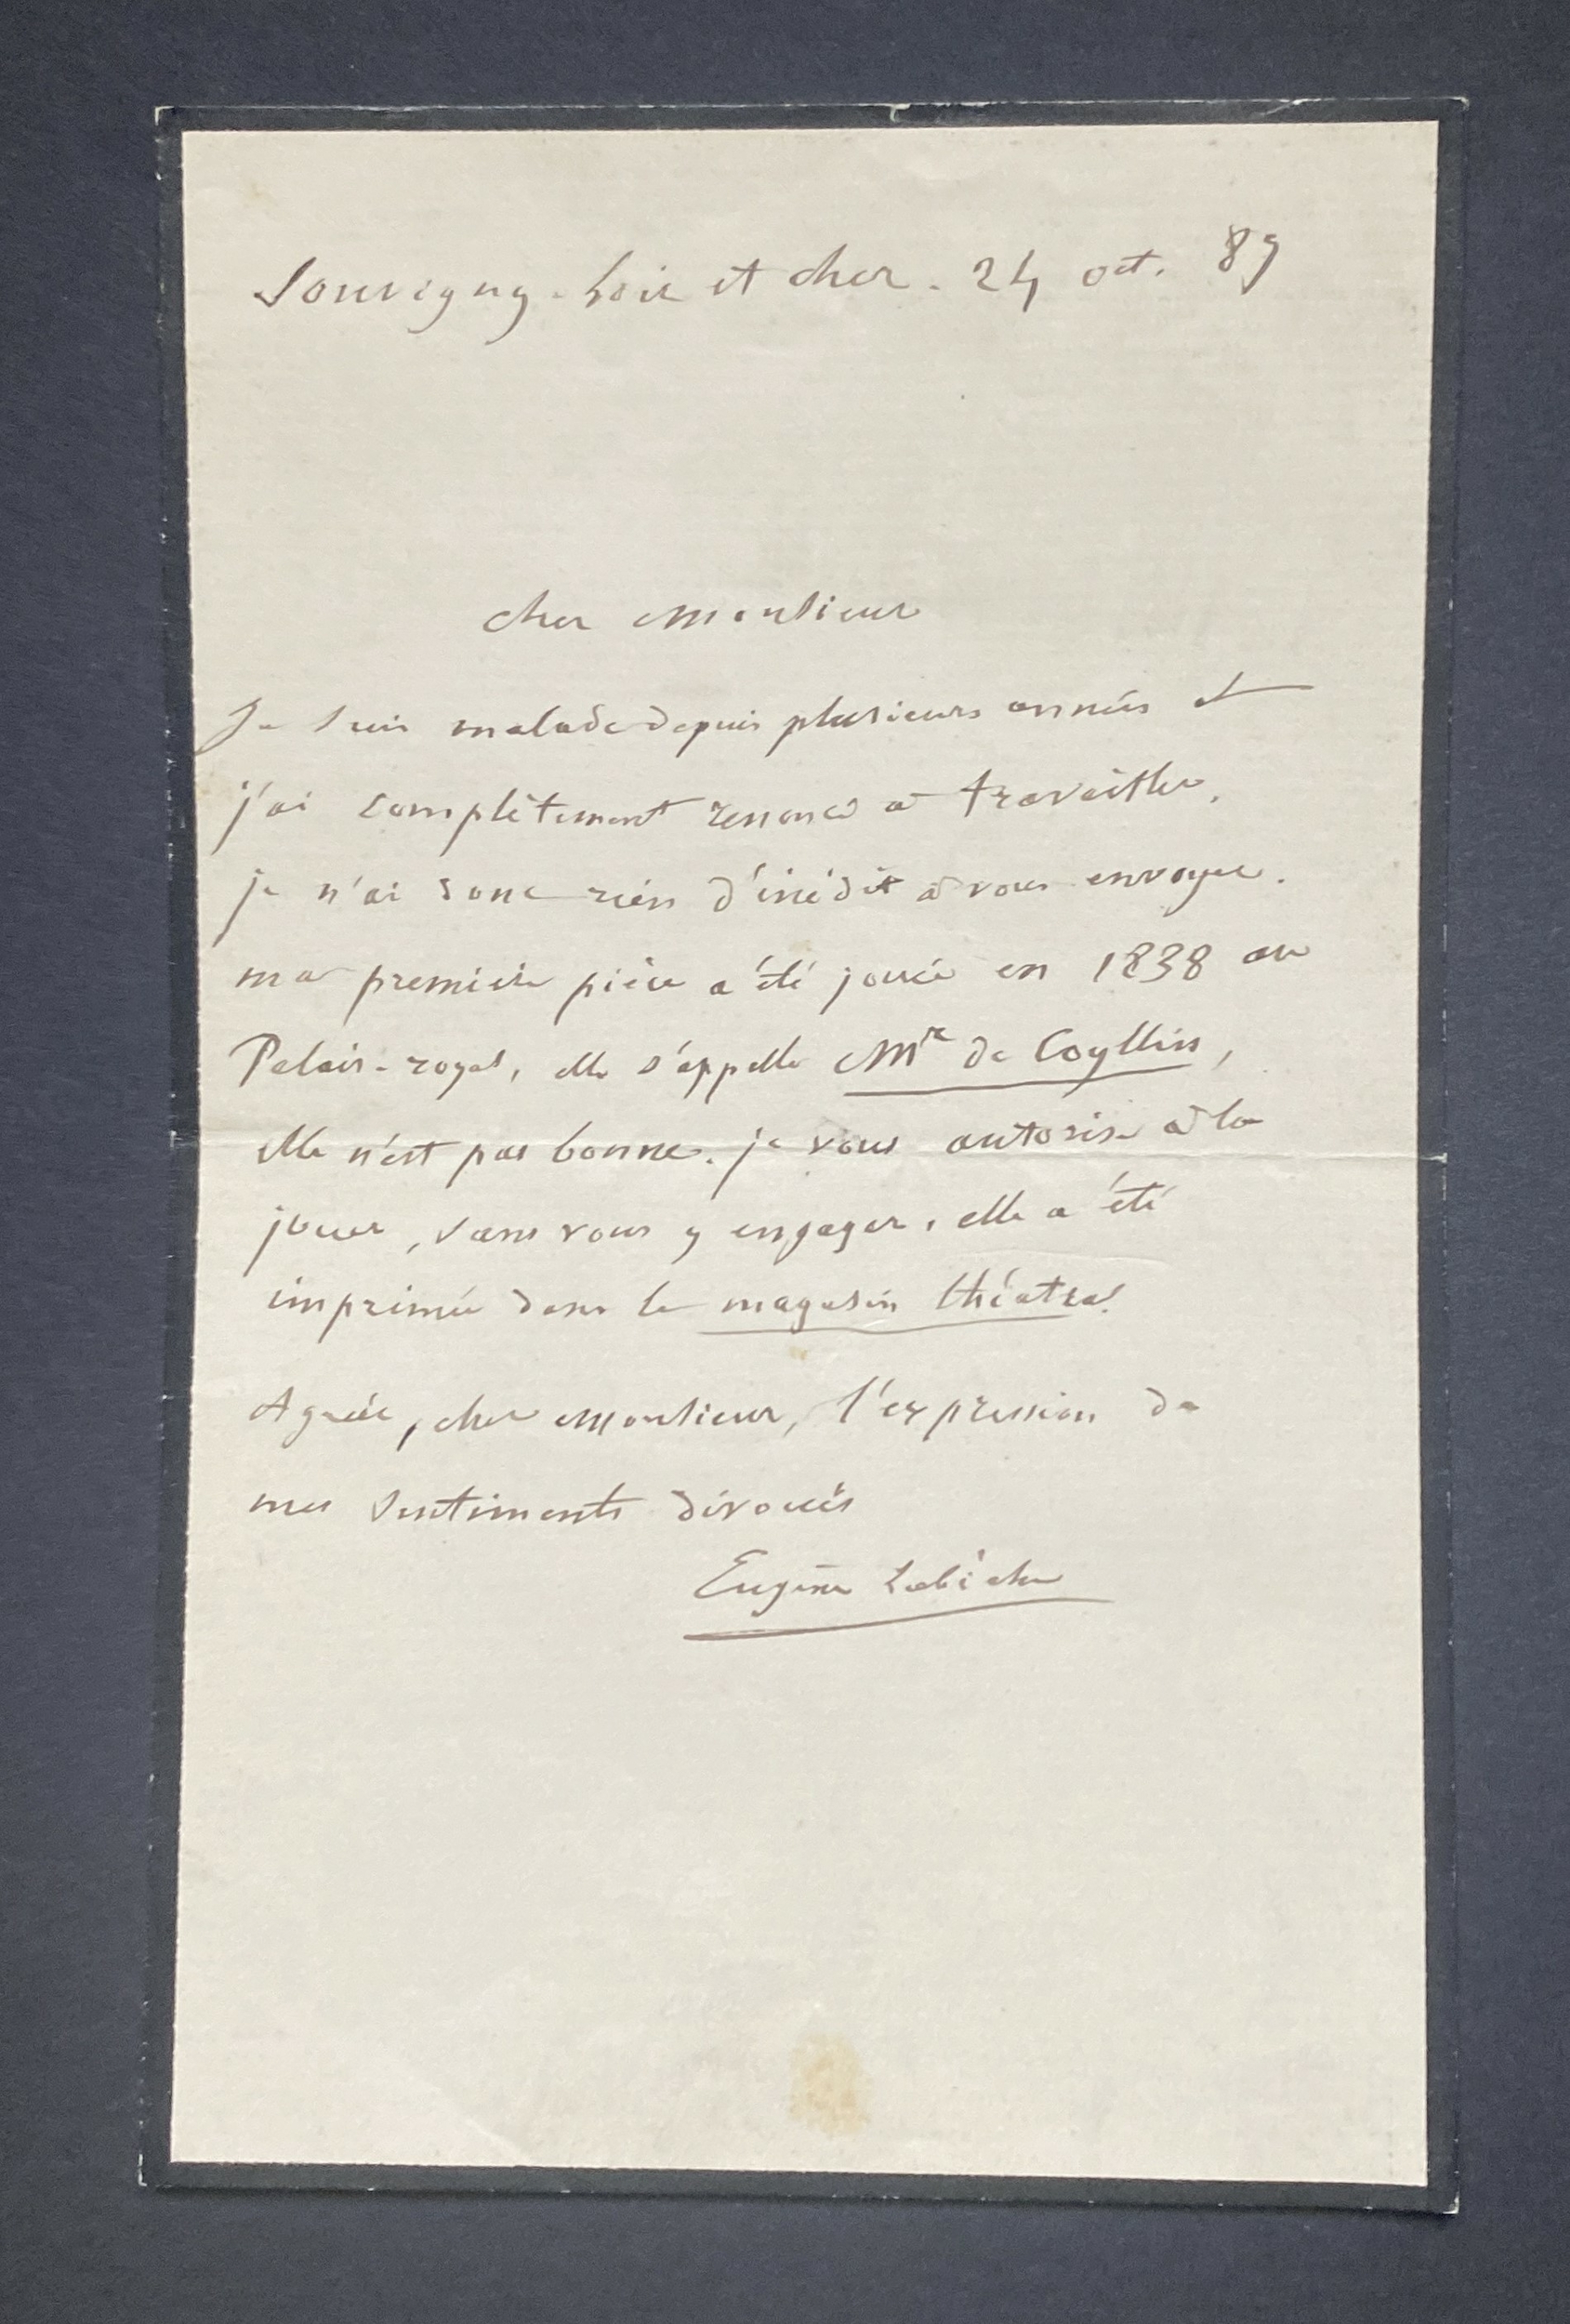 Souvigny. Loir et cher. 24 oct. 89
cher Monsieur
Je suis malade depuis plusieurs années et
j'ai complètement renoncé à travailler.
je n'ai donc rien d'inédit à vous envoyer.
ma première pièce a été jouée en 1838 au
Palais-royal, elle s'appelle Mr de Coyllin,
elle n'est pas bonne. je vous autorise à la
jouer, sans vous y engager. elle a été
imprimée dans le magasin théatral.
Agréez, cher Monsieur, l'expression de
mes sentiments dévoués
Eugène Labiche